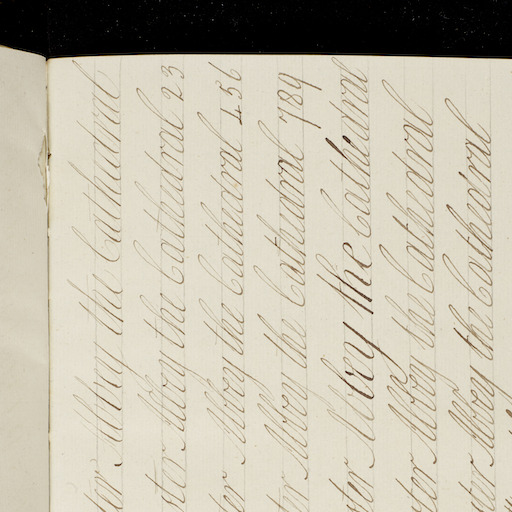 ter Abbey the Cathedral
ster Abbey the Cathedral 23
ter Abbey the Cathedral 456
ter Abbey the Cathedral 789
ster Abbey the Cathedral
ster Abbey the Cathedral
ster Abbey the Cathedral